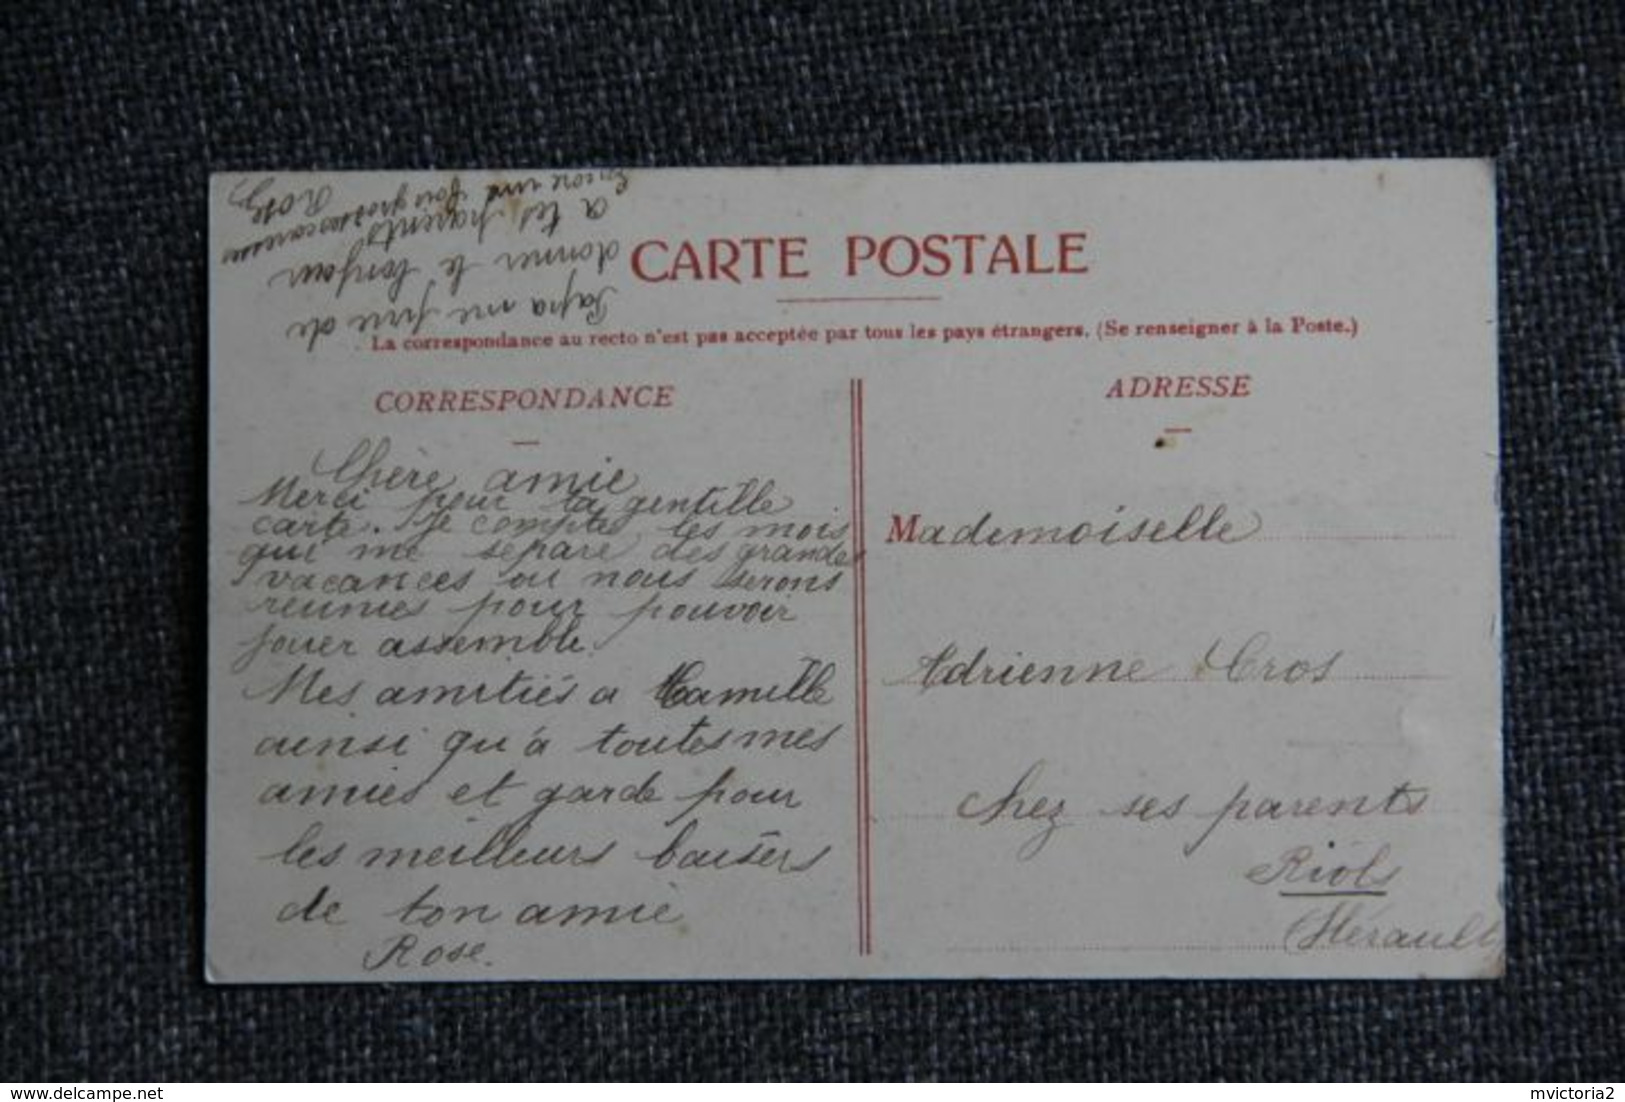 Papa me prie de
donner le bonjour
a tes parents
Encore une fois grosses caresses
Rose
CARTE POSTALE
La correspondance au recto n'est pas acceptée par tous les pays étrangers. (Se renseigner à la Poste.)
CORRESPONDANCE
Chère amie
Merci pour ta gentille
carte. Je compte les mois
qui me separe des grandes
vacances ou nous serons
reunies pour pouvoir
jouer assemble.
Mes amitiés a Camille
ainsi qu'à toutes mes
amies et garde pour
les meilleurs baisers
de ton amie
Rose.
ADRESSE
Mademoiselle
Adrienne Cros
Chez ses parents
Riols
Hérault
delcampe.net
mvictoria2